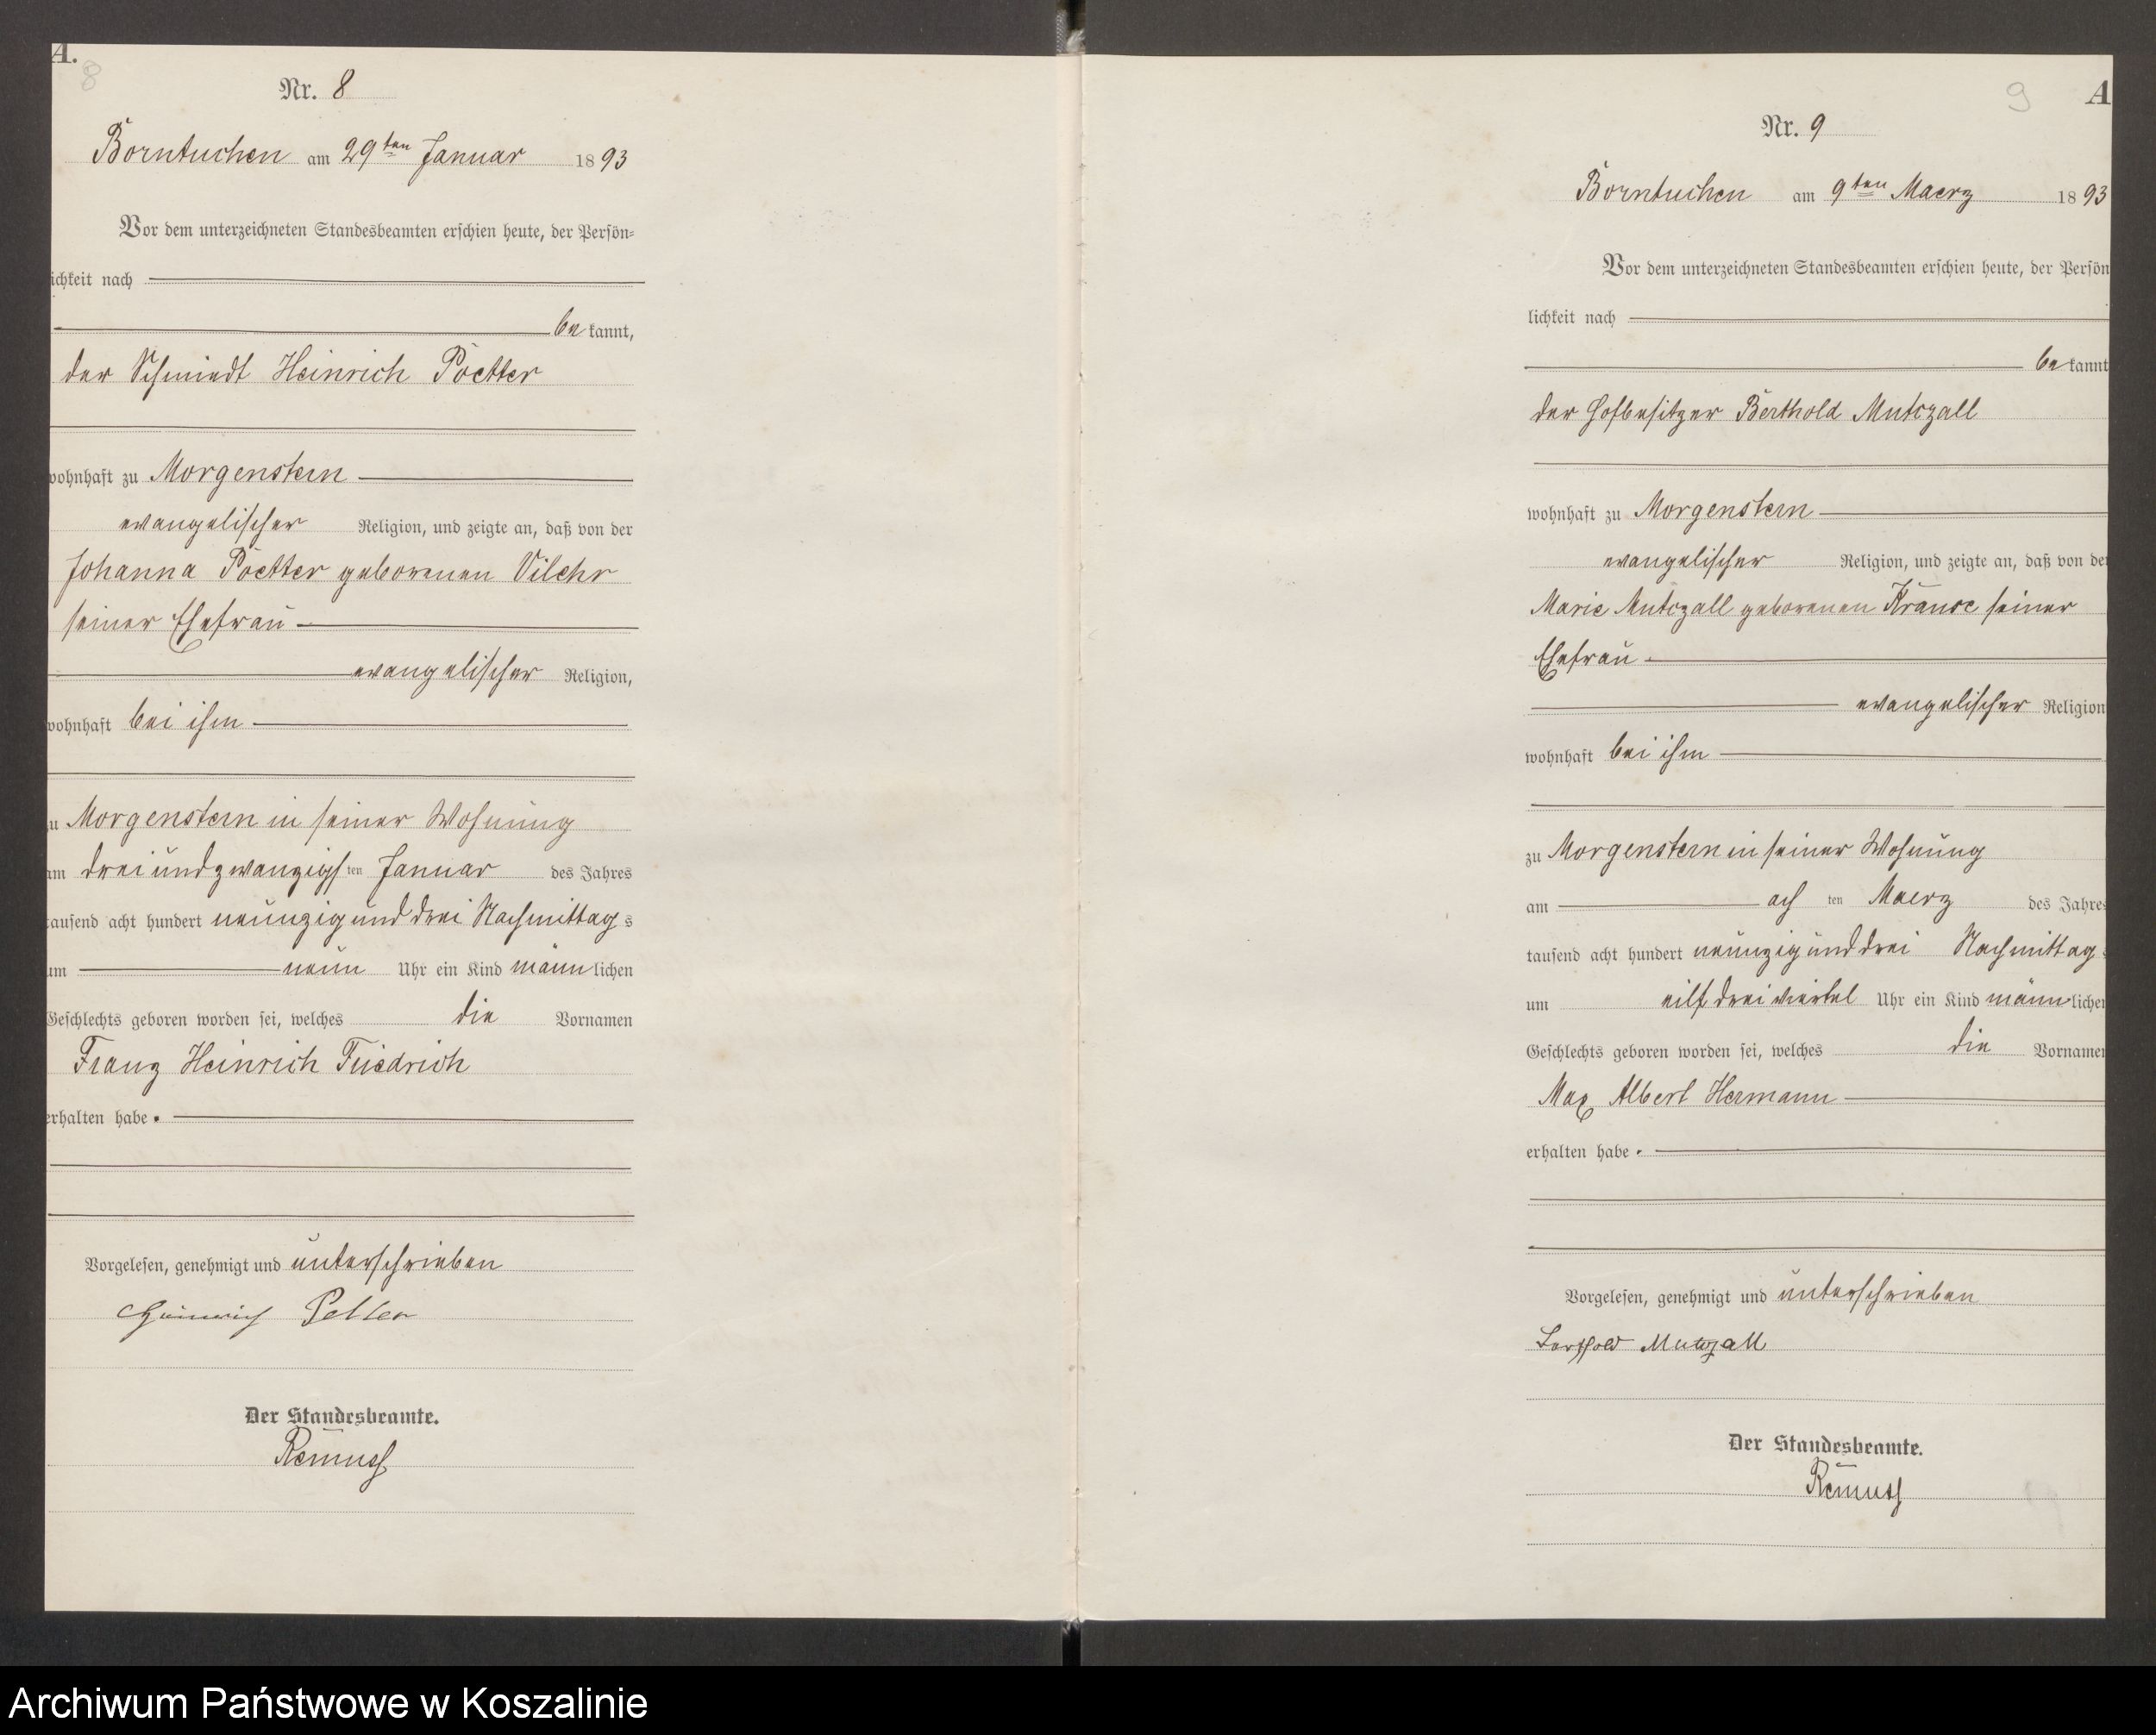 A.
8
Nr. 8
Borntuchen am 29ten Januar 1893
Vor dem unterzeichneten Standesbeamten erschien heute, der Persön-
ichkeit nach
be kannt,
der Schmiedt Heinrich Poetter
wohnhaft zu Morgenstern
evangelischer Religion, und zeigte an, daß von der
Johanna Poetter geborenen
seiner Ehefrau
evangelischer Religion,
wohnhaft bei ihm
zu Morgenstern in seiner Wohnung
am dreiundzwanzigsten Januar des Jahres
tausend acht hundert neunzig und drei Nachmittags
um neun Uhr ein Kind männlichen
Geschlechts geboren worden sei, welches die Vornamen
Franz Heinrich Friedrich
erhalten habe.
Vorgelesen, genehmigt und unterschrieben
Heinrich Petter
Der Standesbeamte.
Remuss
9
A
Nr. 9
Borntuchen am 9ten Maerz 1893
Vor dem unterzeichneten Standesbeamten erschien heute, der Persön
lichkeit nach
be kannt
der Hofbesitzer Berthold Mutczall
wohnhaft zu Morgenstern
evangelischer Religion, und zeigte an, daß von der
Marie Mutczall geborenen Krause seiner
Ehefrau
evangelischer Religion
wohnhaft bei ihm
zu Morgenstern in seiner Wohnung
am ach ten Maerz des Jahres
tausend acht hundert neunzig und drei Nachmittag
um eilf dreiviertel Uhr ein Kind männlichen
Geschlechts geboren worden sei, welches die Vornamen
Max Albert Hermann
erhalten habe.
Vorgelesen, genehmigt und unterschrieben
Berthold Mutczall
Der Standesbeamte.
Remuss
Archiwum Państwowe w Koszalinie